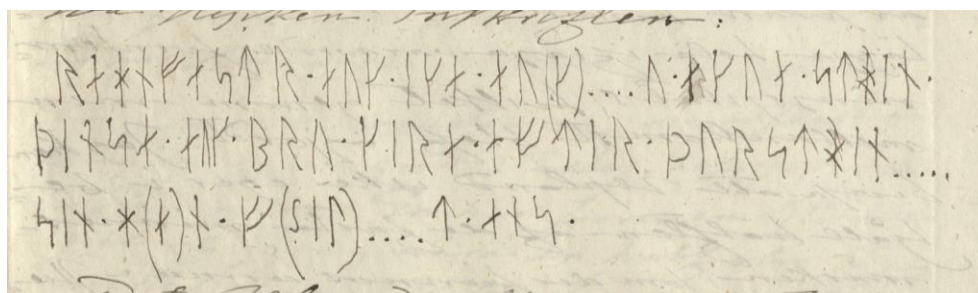 ᚱᛅᚼᚾᚠᛅᛋᛏᚱ·ᛅᚢᚴ·ᛁᚴᛅ·ᛅᚢ(ᚴ)....ᚢ·ᛅᚴᚢᛅ·ᛋᛏᛡᛁᚾ·
ᚦᛁᚾᛋᛅ·ᛅᚢᚴ·ᛒᚱᚢ·ᚴᛁᚱᛅ·ᛅᚠᛏᛁᚱ·ᚦᚢᚱᛋᛏᛡᛁᚾ.....
ᛋᛁᚾ·ᚼ(ᛅ)ᚾ·ᚠ(ᛋᛁᛚ)....ᛏ·ᛅᚾᛋ·